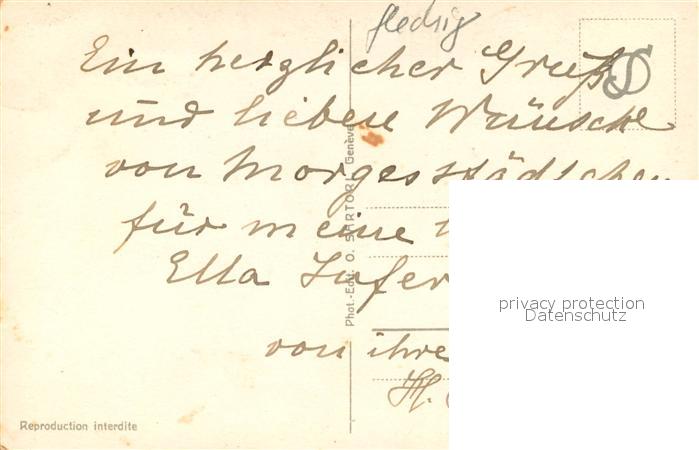 Ein herzlicher Gruß
und liebe Wünsche
von Morgesstädtchen
für meine
Ella
von ihre
H.
Phot.-Edit. O. SARTORI, Genève
Reproduction interdite
privacy protection
Datenschutz